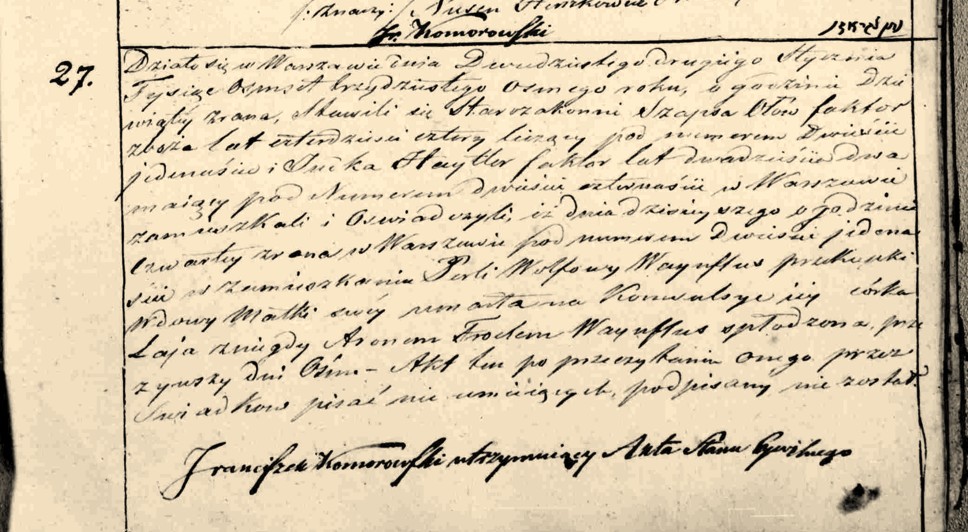 /: znaczy: / Nusen
Fr. Komorowski
27.
Działo się w Warszawie dnia Dwudziestego drugiego Stycznia
Tysiąc Osmset trzydziestego Osmego roku, o godzinie Dzie
wiątey zrana, Stawili się Starozakonni Szapsa Ettow faktor
zboża lat czterdzieści cztery liczący pod numerem Dwieście
jedenaście i Icka Haytler faktor lat dwadzieścia dwa
maiący pod Numerem dwieście czternaście w Warszawie
zamieszkali i Oswiadczyli, iż dnia dzisieyszego o godzinie
Czwartey zrana w Warszawie pod numerem Dwieście jedena
ście w zamieszkaniu Perli Wolfowy Waynflus przekupki
Wdowy Matki swéy umarła na Konwulsye iéy córka
Łaja z niegdy Aronem Froelem Waynflus spłodzona, prze
zywszy dni Ośm – Akt ten po przeczytaniu onego przez
Swiadkow pisać nie umieiących, podpisany nie został.
Franciszek Komorowski utrzymuiący Akta Stanu Cywilnego